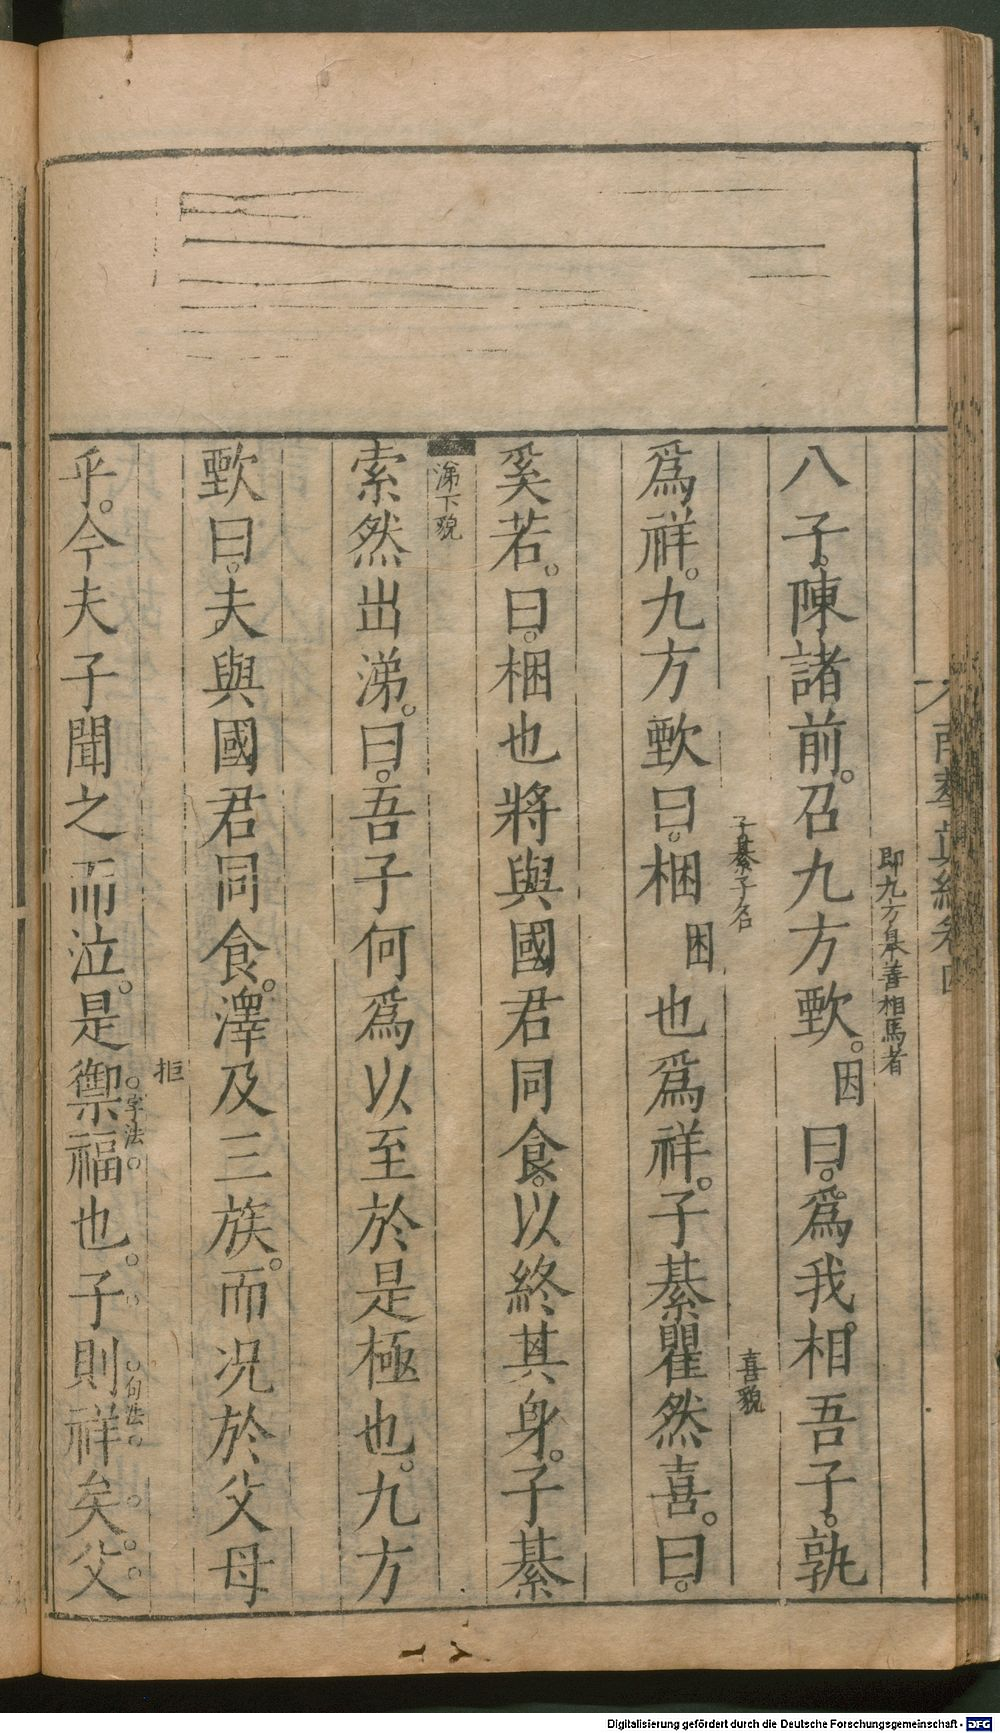 南華真經卷四
即九方皐善相馬者
八子。陳諸前。召九方歅。因曰。爲我相吾子。孰
子綦子名
喜貌
爲祥。九方歅曰。梱困也爲祥。子綦瞿然喜。曰。
奚若。曰。梱也將與國君同食。以終其身。子綦
涕下貌
索然出涕。曰。吾子何爲以至於是極也。九方
歅曰。夫與國君同食。澤及三族。而况於父母
拒
字法
句法
乎。今夫子聞之而泣。是禦福也。子則祥矣。父
Digitalisierung gefördert durch die Deutsche Forschungsgemeinschaft - DFG